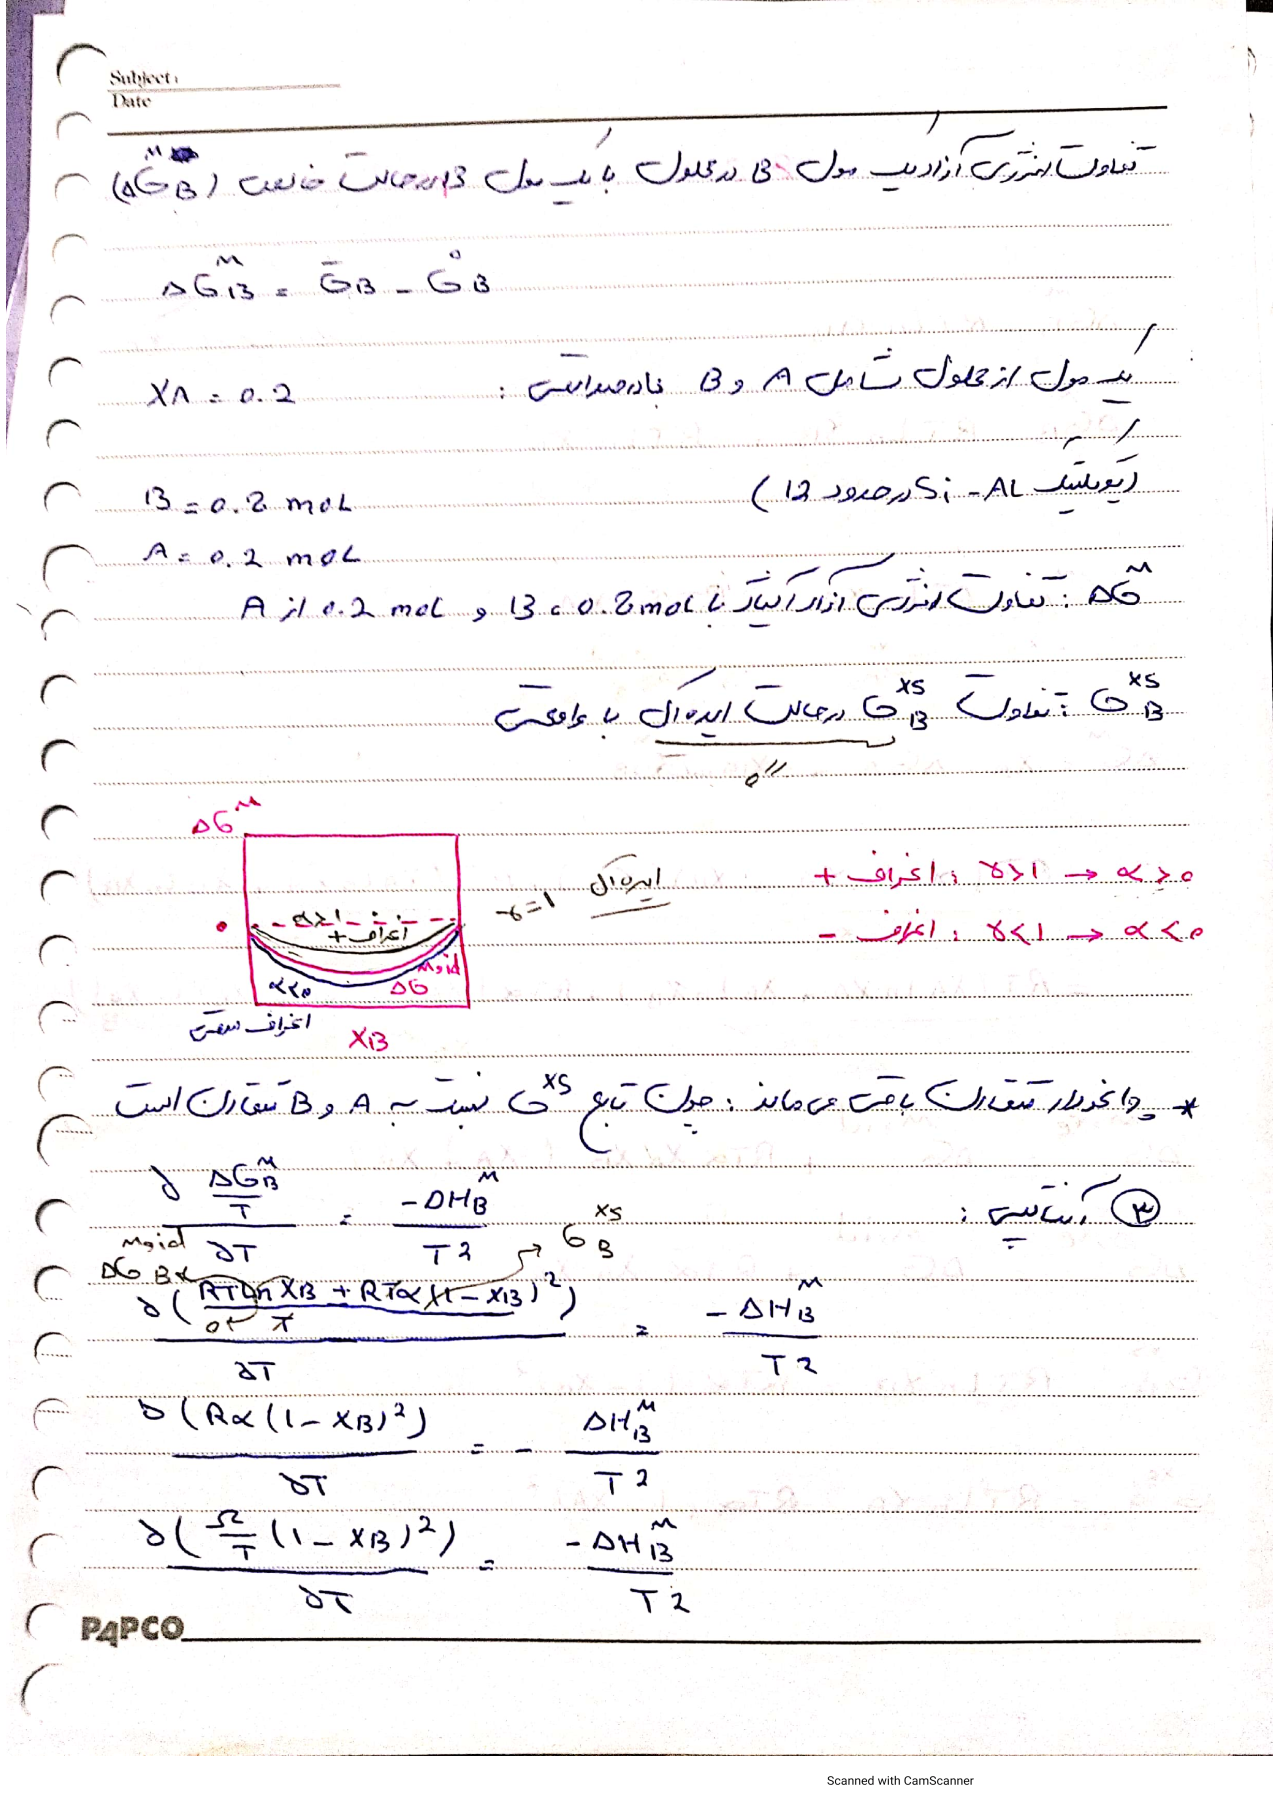 Subject:
Date
تفاوت انرژی آزاد یک مول B در محلول با یک مول B در حالت خالص (ΔG̅B^M)
ΔG̅B^M = G̅B - G°B
یک مول از محلول شامل A و B : XA = 0.2
(یوتکتیک Al - Si در حدود 12)
B = 0.8 mol
A = 0.2 mol
ΔG^M : تفاوت انرژی آزاد آلیاژ با B = 0.8 mol و 0.2 mol از A
G̅B^xs : تفاوت G̅B^xs در حالت ایده‌آل با واقعی
0
ΔG^M
انحراف + : γ>1 → α>0
ایده‌آل γ=1
α>1
انحراف +
انحراف - : γ<1 → α<0
ΔG^M,id
α<0
انحراف منفی
XB
* چرا نمودار متقارن باقی می‌ماند : چون تابع G^xs نسبت به A و B متقارن است
③ آنتالپی :
∂ (ΔG̅B^M / T) / ∂T = -ΔH̅B^M / T2
ΔG̅B^M,id
G̅B^xs
∂ ( (RT Ln XB + RTα (1 - XB)^2) / T ) / ∂T = -ΔH̅B^M / T2
∂ (Rα (1 - XB)^2) / ∂T = - ΔH̅B^M / T2
∂ (Ω/T (1 - XB)^2) / ∂T = -ΔH̅B^M / T2
PAPCO
Scanned with CamScanner